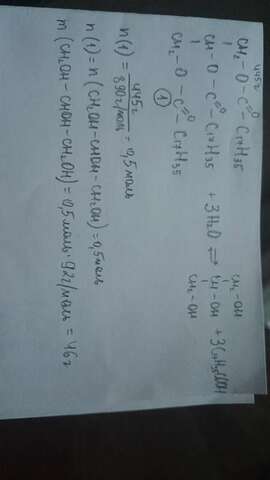 445г
CH₂-O-C=O-C₁₇H₃₅ CH₂-OH
CH-O-C=O-C₁₇H₃₅ + 3H₂O ⇌ CH-OH + 3C₁₇H₃₅COOH
CH₂-O-C=O-C₁₇H₃₅ CH₂-OH
①
n(1) = 445г / 890г/моль = 0,5 моль
n(1) = n(CH₂OH-CHOH-CH₂OH) = 0,5 моль
m(CH₂OH-CHOH-CH₂OH) = 0,5 моль · 92г/моль = 46г